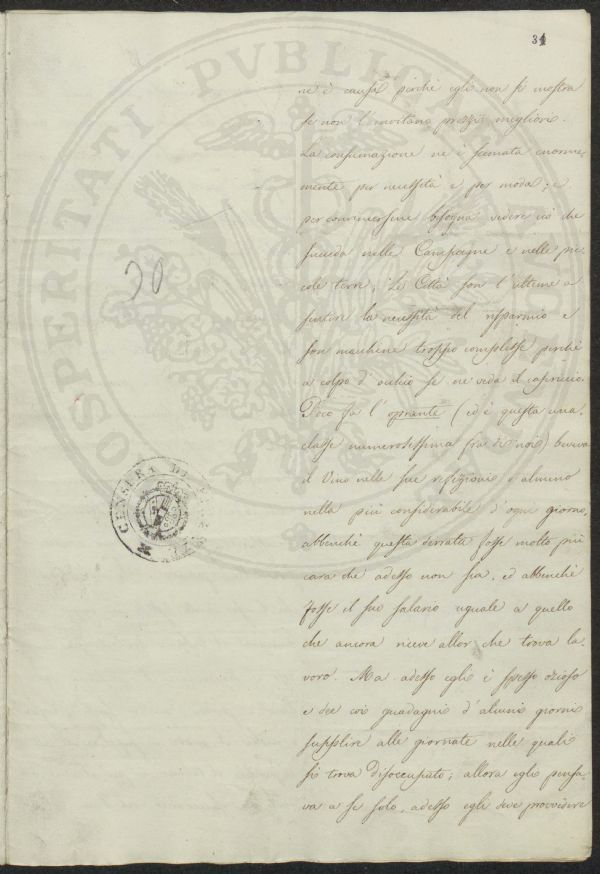 34
ne è causa perchè egli non si mostra
se non l'invitano prezzi migliori.
La consumazione ne è scemata enorme-
mente per necessità e per moda; e
per convincersene bisogna vedere ciò che
succeda nelle Campagne e nelle pic-
cole terre; Le Città son l'ultime a
sentire la necessità del risparmio e
son macchine troppo complesse perchè
a colpo d'occhio se ne veda il capriccio.
Poco fa l'oprante (ed è questa una
classe numerosissima fra di noi) beveva
il Vino nelle sue refezioni o almeno
nella più considerabile d'ogni giorno,
abbenchè questa derrata fosse molto più
cara che adesso non sia, ed abbenchè
fosse il suo salario uguale a quello
che ancora riceve allor che trova la-
voro. Ma adesso egli è spesso ozioso
e dee coi guadagni d'alcuni giorni
supplire alle giornate nelle quali
si trova disoccupato; allora egli pensa-
va a se solo, adesso egli deve provvedere
20
CENSURA DI
PROSPERITATI PVBLICAE